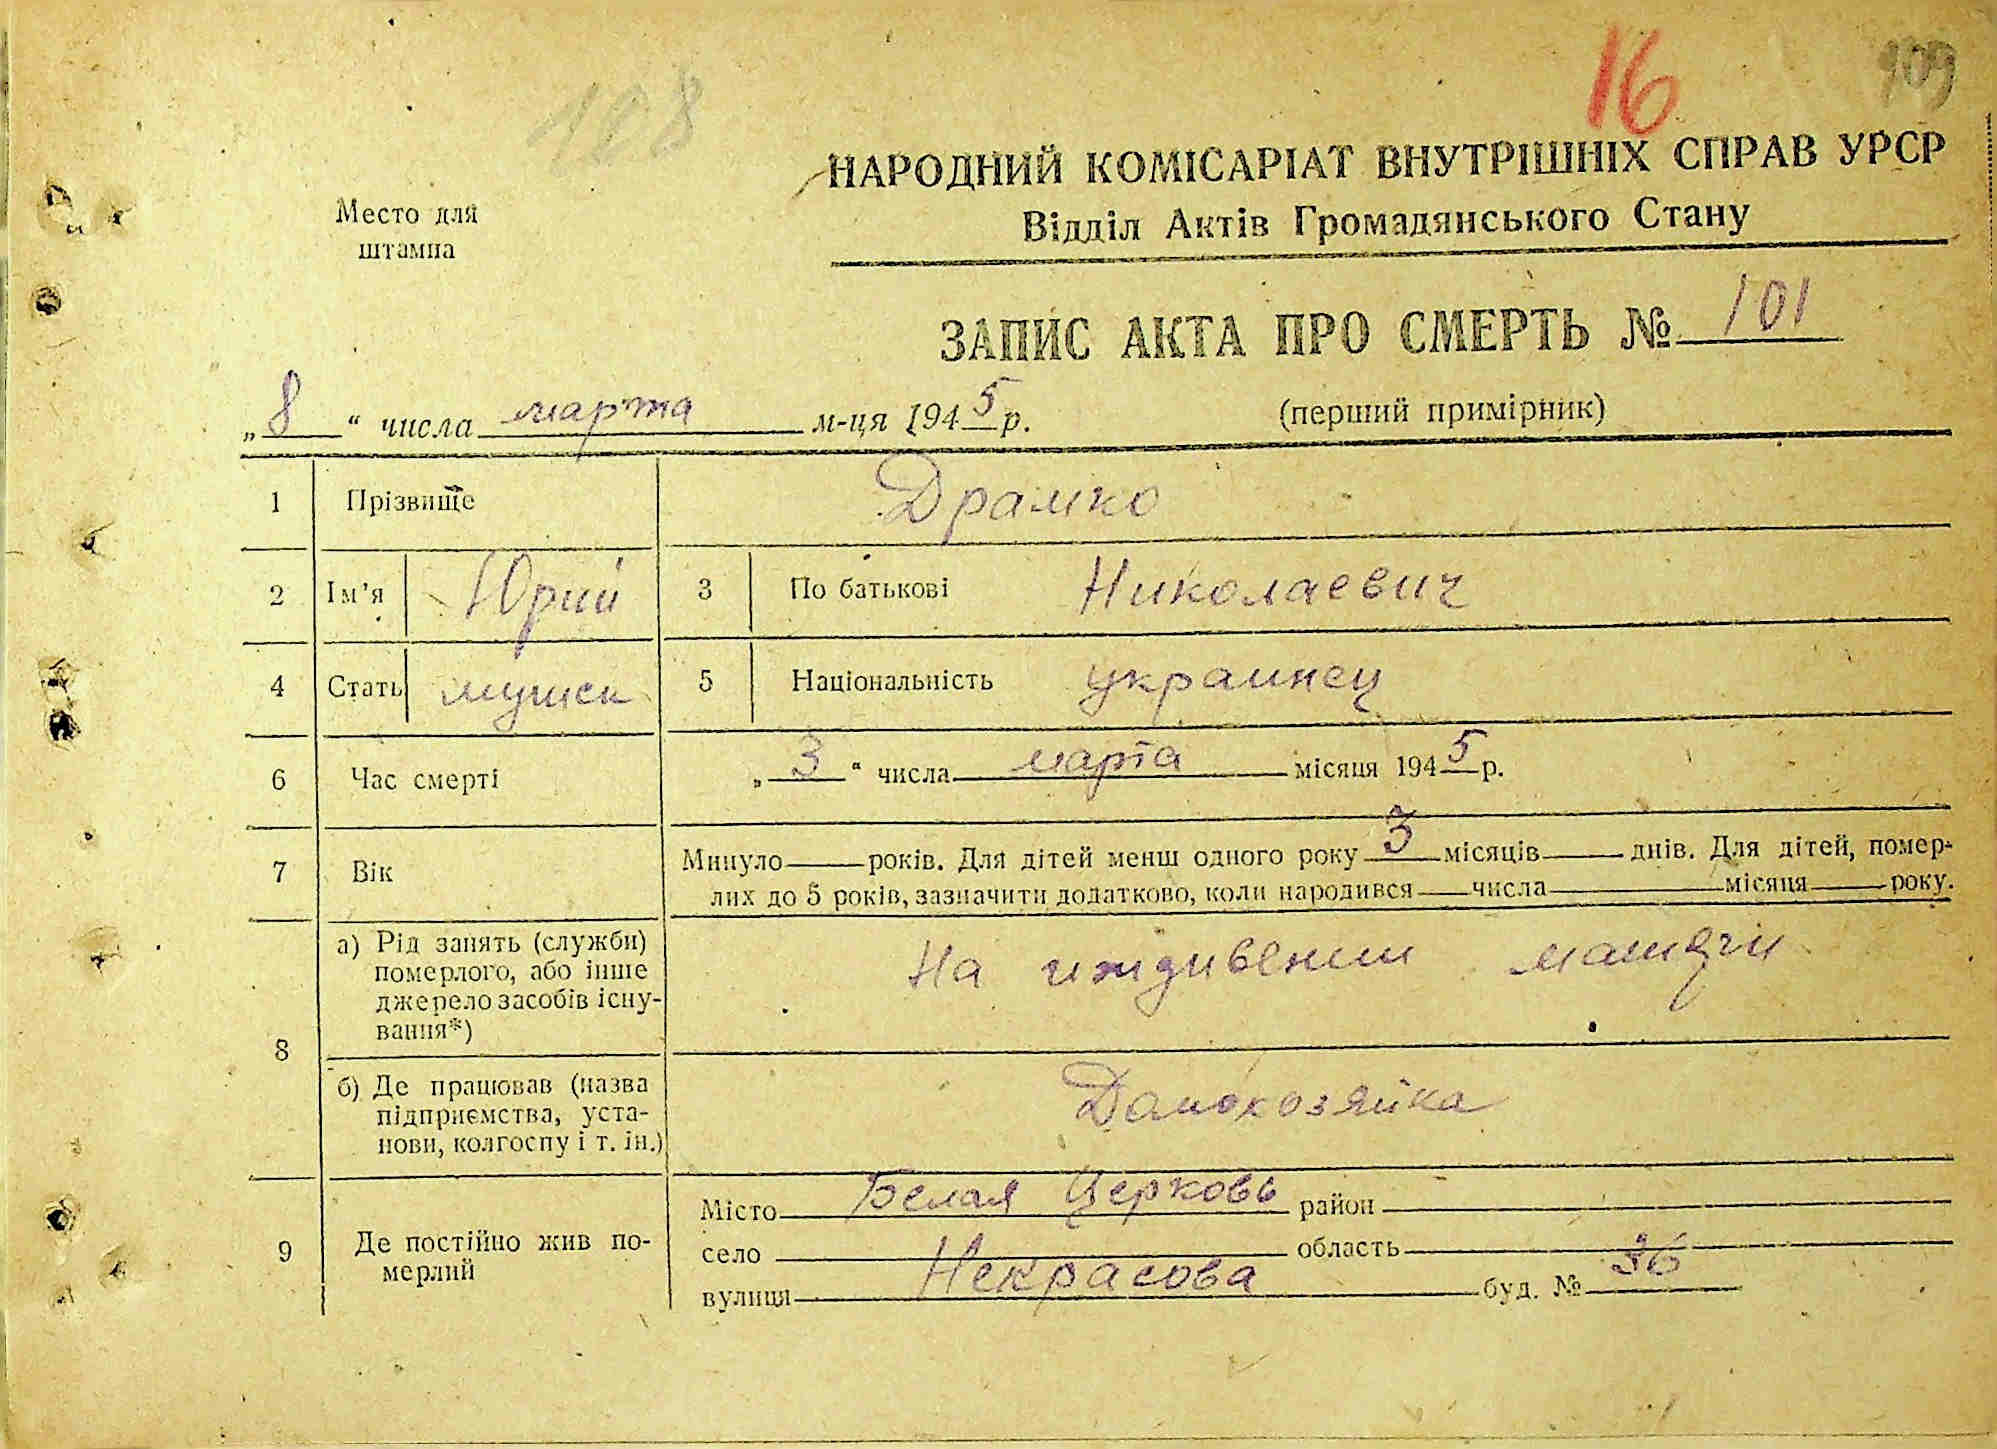 108
16
109
НАРОДНИЙ КОМІСАРІАТ ВНУТРІШНІХ СПРАВ УРСР
Відділ Актів Громадянського Стану
Место для
штампа
ЗАПИС АКТА ПРО СМЕРТЬ № 101
„8“ числа марта м-ця 1945 р.
(перший примірник)
1 Прізвище Драмко
2 Ім'я Юрий 3 По батькові Николаевич
4 Стать мужск 5 Національність украинец
6 Час смерті „3“ числа марта місяця 1945 р.
7 Вік Минуло ___ років. Для дітей менш одного року 3 місяців ___ днів. Для дітей, помер-
лих до 5 років, зазначити додатково, коли народився ___ числа ___ місяця ___ року.
8 а) Рід занять (служби)
померлого, або інше
джерело засобів існу-
вання*)
На иждивении матери
б) Де працював (назва
підприємства, уста-
нови, колгоспу і т. ін.)
Домохозяйка
9 Де постійно жив по-
мерлий
Місто Белая Церковь район
село ___ область
вулиця Некрасова буд. № 36